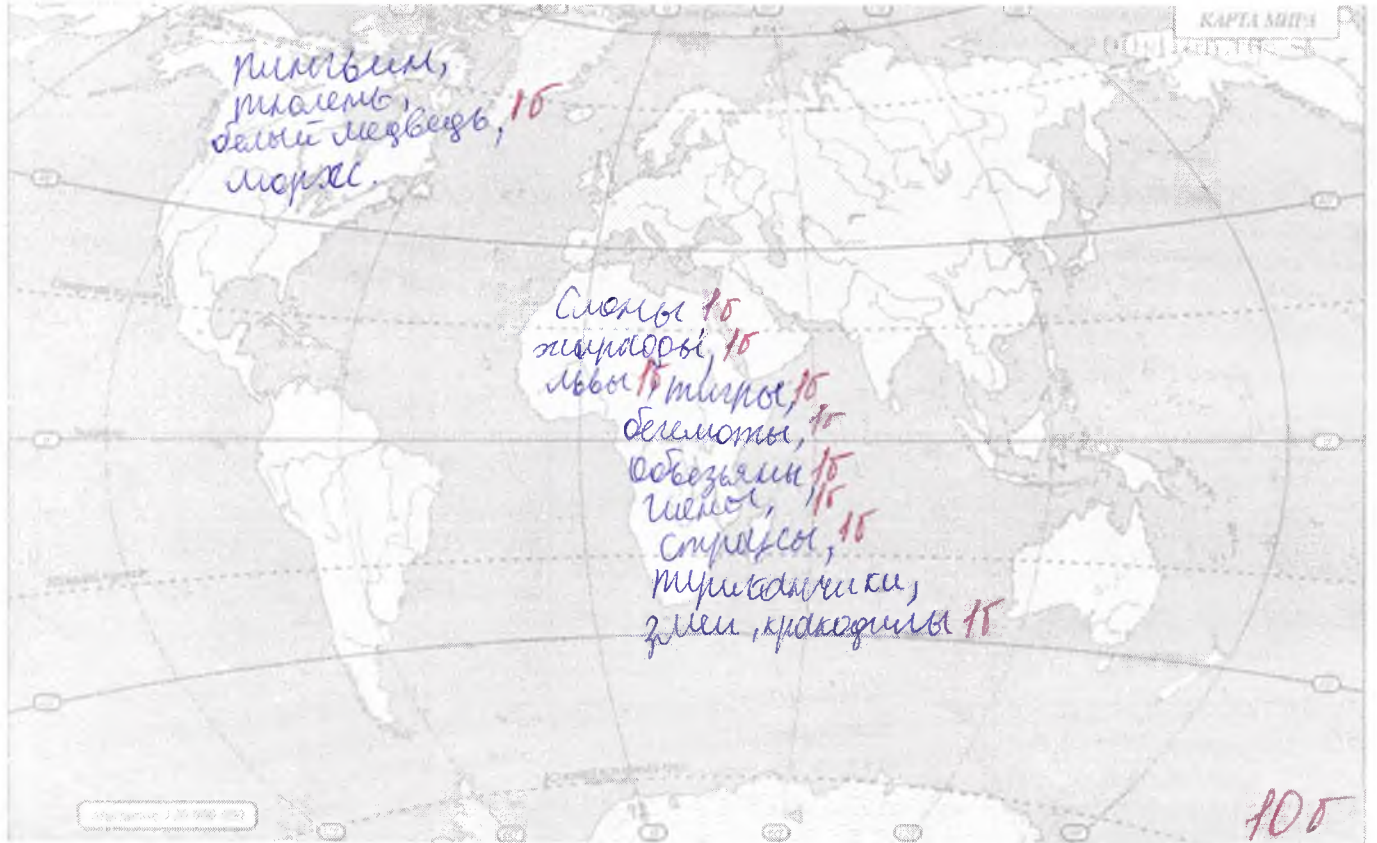 КАРТА МИРА
пингвин,
тюлень,
белый медведь, 1б
морж.
Слоны 1б
жирафы, 1б
львы 1б, тигры, 1б
бегемоты, 1б
обезьяны 1б
гиены, 1б
страусы, 1б
тушканчики,
змеи, крокодилы 1б
10б